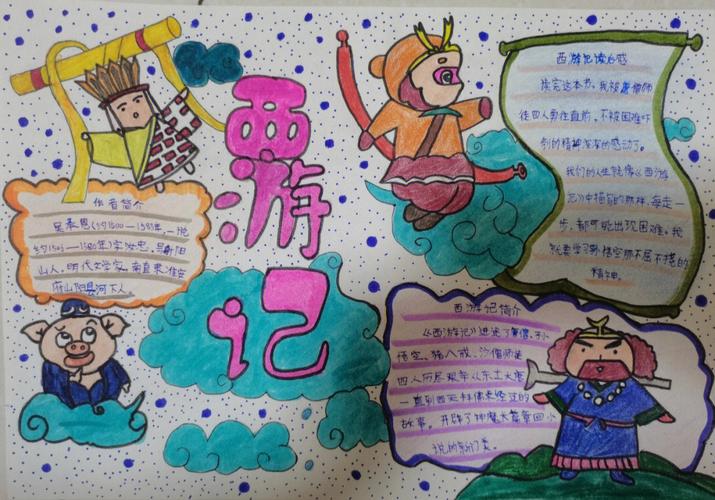 西游记
作者简介
吴承恩(约1500—1583年,一说
约1505—1580年)字汝忠,号射阳
山人。明代文学家。南直隶淮安
府山阳县河下人。
西游记读后感
读完这本书,我被唐僧师
徒四人勇往直前,不被困难吓
到的精神深深的感动了。
我们的人生就像《西游
记》中描绘的那样,每走一
步,都可能出现困难。我
就要学习孙悟空那不屈不挠的
精神。
西游记简介
《西游记》讲述了唐僧、孙
悟空、猪八戒、沙僧师徒
四人历尽艰辛从东土大唐
一直到西天拜佛求经过的
故事。开辟了神魔长篇章回小
说的新门类。